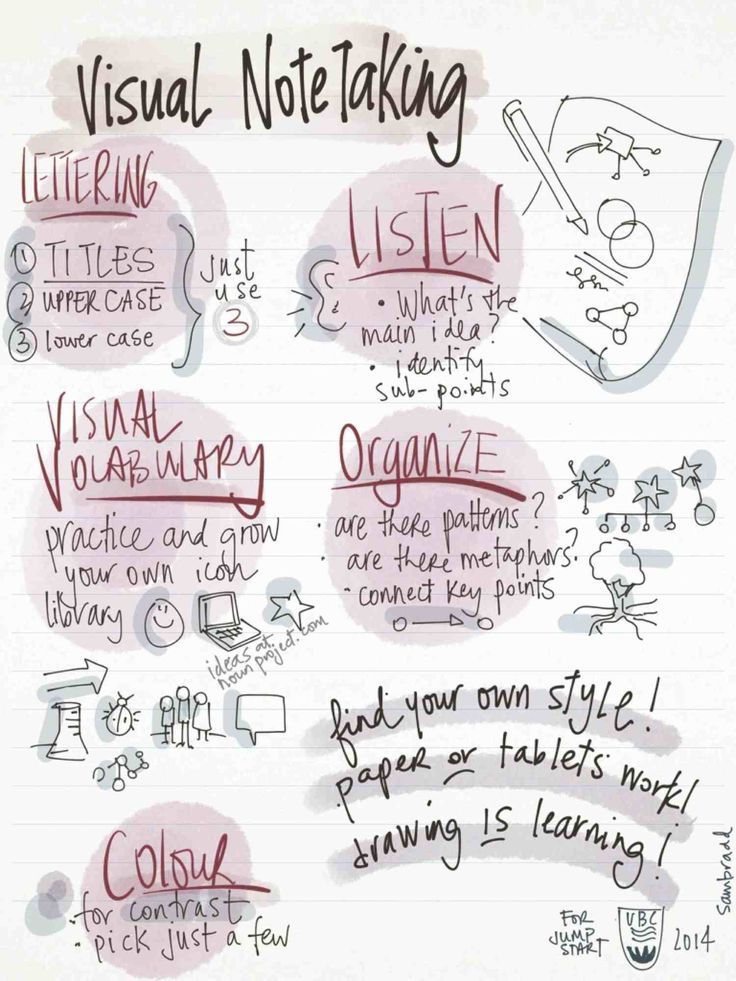 Visual NoteTaking
LETTERING
① TITLES
② UPPER CASE
③ lower case
just
use
3
LISTEN
• What's the
main idea?
• identify
sub-points
VISUAL
VOCABULARY
practice and grow
your own icon
library
ideas at
nounproject.com
Organize
• are there patterns?
• are there metaphors?
• connect key points
find your own style!
paper or tablets work!
drawing IS learning!
Colour
• for contrast
• pick just a few
FOR
JUMP
START
UBC
2014
sambradd